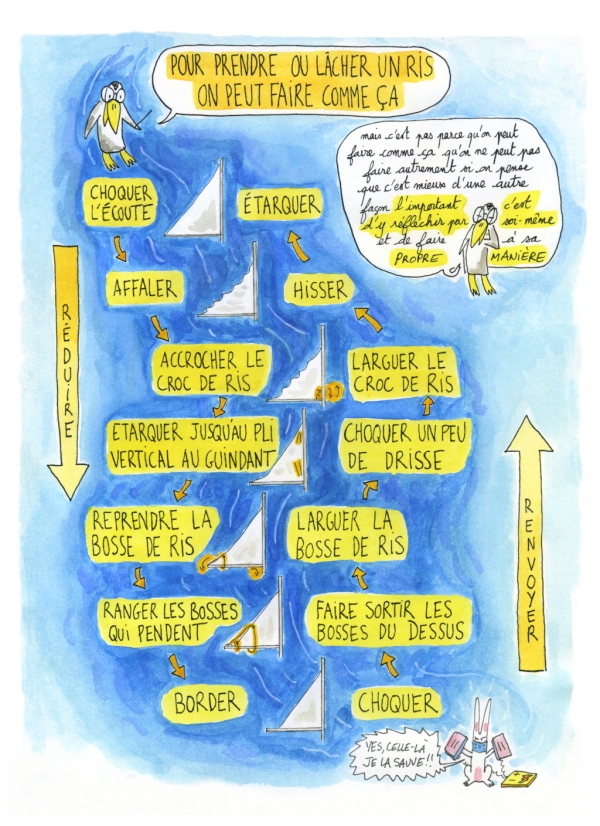 POUR PRENDRE OU LÂCHER UN RIS
ON PEUT FAIRE COMME ÇA
mais c'est pas parce qu'on peut
faire comme ça qu'on ne peut pas
faire autrement si on pense
que c'est mieux d'une autre
façon l'important c'est
d'y réfléchir par soi-même
et de faire à sa
PROPRE MANIÈRE
RÉDUIRE
CHOQUER
L'ÉCOUTE
AFFALER
ACCROCHER LE
CROC DE RIS
ETARQUER JUSQU'AU PLI
VERTICAL AU GUINDANT
REPRENDRE LA
BOSSE DE RIS
RANGER LES BOSSES
QUI PENDENT
BORDER
ÉTARQUER
HISSER
LARGUER LE
CROC DE RIS
CHOQUER UN PEU
DE DRISSE
LARGUER LA
BOSSE DE RIS
FAIRE SORTIR LES
BOSSES DU DESSUS
CHOQUER
RENVOYER
YES, CELLE-LÀ
JE LA SAUVE!!